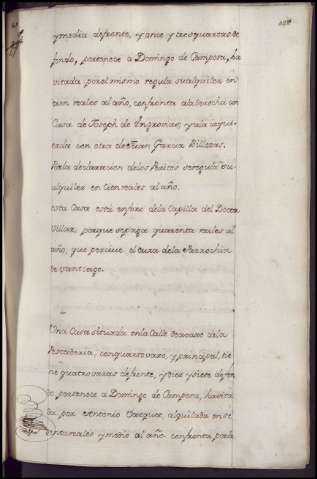 y media de frente, y onze y tres quartas de
fondo, pertenece a Domingo de Campora, ha
vitada por el mismo regula su alquiler en
cien reales al año, confronta a la derecha con
Casa de Joseph de , y a la izquie
rda con otra de Juan Garcia Billegas.
Por la declaracion de los Peritos se regula su
alquiler en Cien reales al año.
esta Casa está en foro de la Capilla del Doctor
Villar, porque se paga quarenta reales al
año, que percive el cura de la Parrochia
de Santiago.
Una Casa situada en la Calle de la
, con quarto vajo, y principal, tie
ne quatro varas de frente, y diez y siete de fon
do pertenece a Domingo de Campora, havita
da por Antonio Vazquez, alquilada en se
reales y medio al año confronta por la